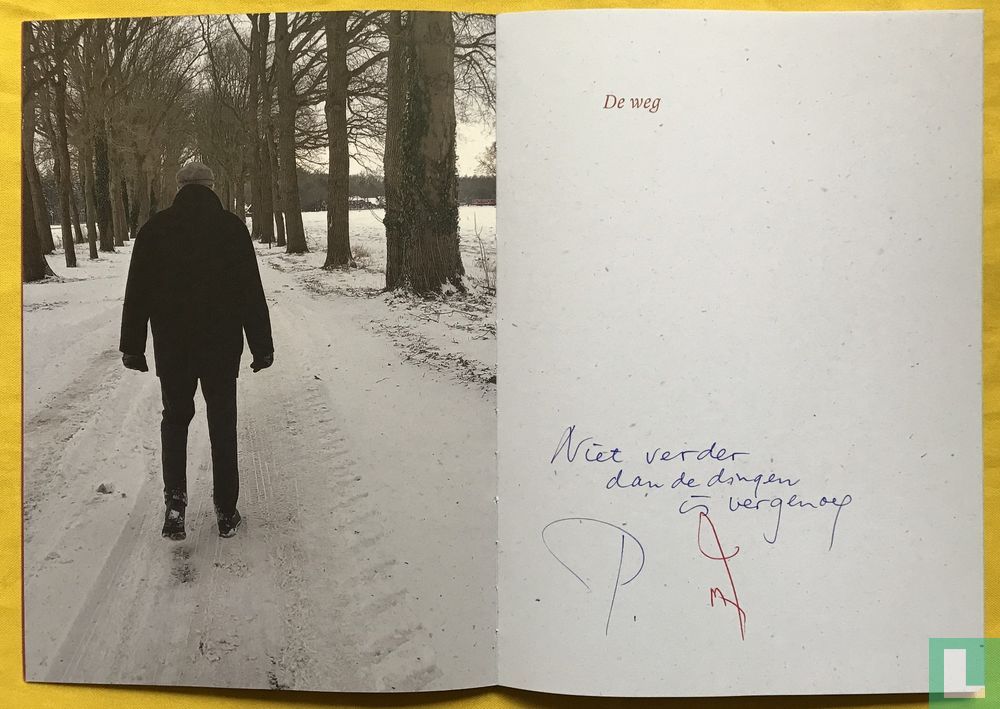 De weg
Niet verder
dan de dingen
is ver genoeg
L